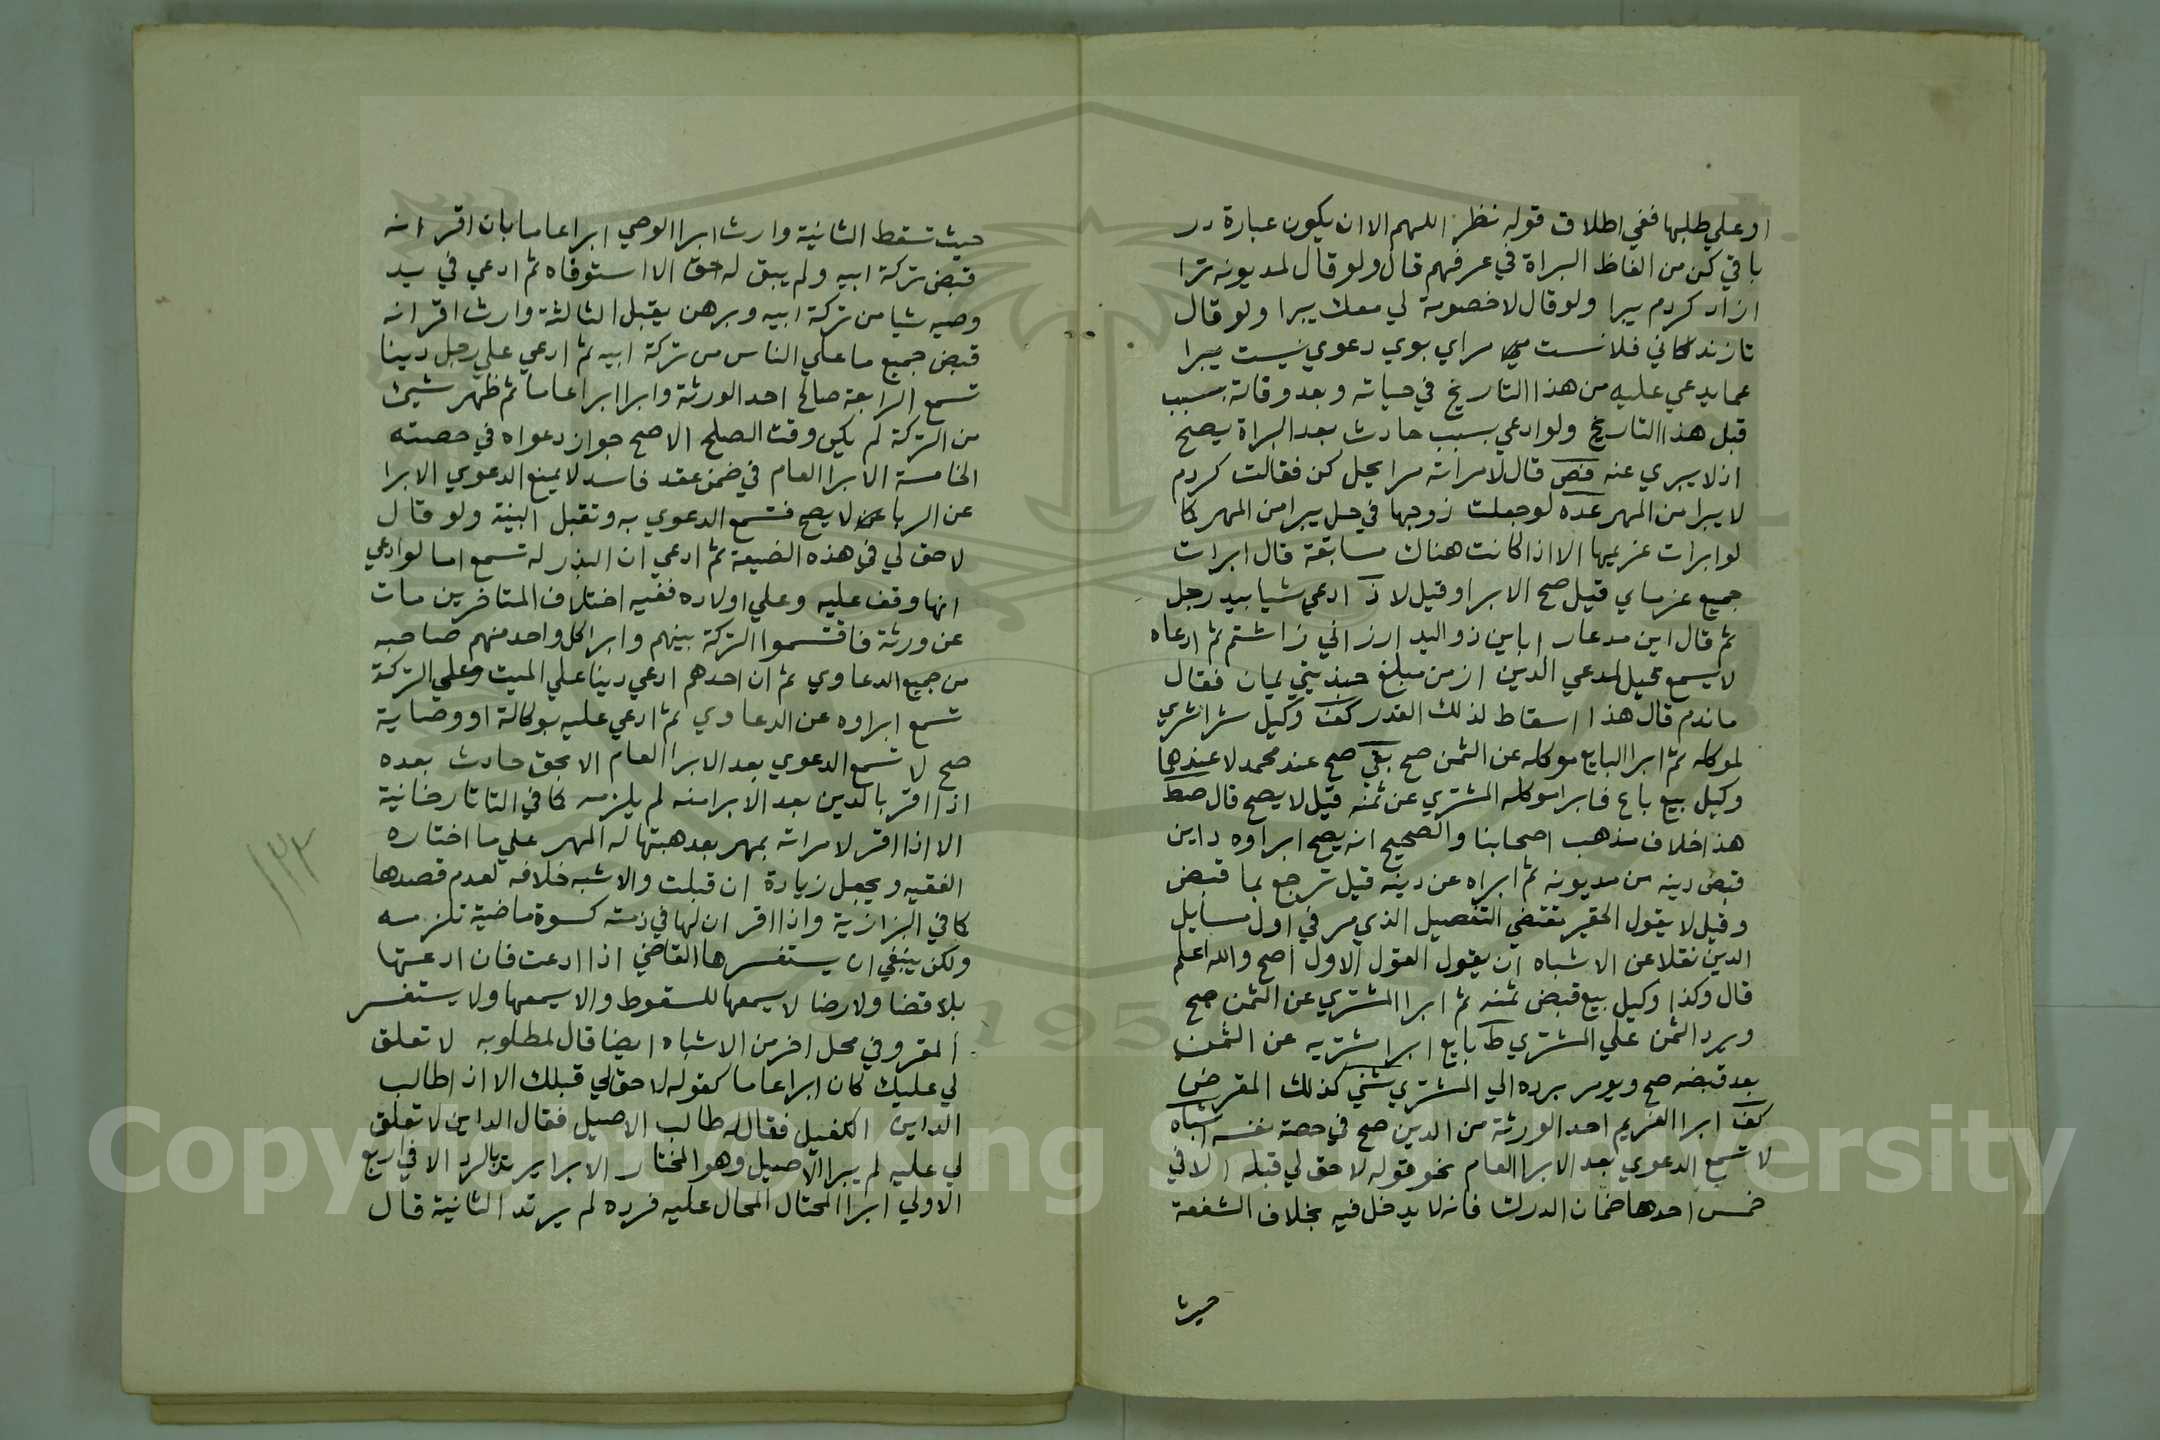 او علي طلبها ففي اطلاق قوله نظر اللهم الا ان يكون عبارة در
باقي كن من الفاظ البراة في عرفهم قال ولو قال لمديونه ترا
ازاد كردم يبرا ولو قال لا خصومة لي معك يبرا ولو قال
تا زندكاني فلانست مراي بوي دعوي نيست يبرا
عما يدعي عليه من هذا التاريخ في حياته وبعد وفاته بسبب
قبل هذا التاريخ ولو ادعي بسبب حادث بعد البراة يصح
اذ لا يبري عنه فص قال لامراته مرا بحل كن فقالت كردم
لا يبرا من المهر عده لو جعلت زوجها في حل يبرا من المهر كما
لو ابرات غريمها الا اذا كانت هناك سابقة قال ابرات
جميع غرماي قيل صح الابرا وقيل لا ذ ادعي شيا بيد رجل
ثم قال اين مدعار ا باين ذو اليد ارزاني ثم ادعاه
لا يسمع قيل لمدعي الدين از من مبلغ بمان فقال
ماندم قال هذا اسقاط لذلك القدر كف وكيل شرا شري
لموكله ثم ابرا البايع موكله عن الثمن صح بقي صح عند محمد لا عندهما
وكيل بيع باع فابرا موكله المشتري عن ثمنه قيل لا يصح قال صط
هذا خلاف مذهب اصحابنا والصحيح انه يصح ابراوه داين
قبض دينه من مديونه ثم ابراه عن دينه قيل ترجع بما قبض
وقيل لا يقول الحقير تقتضي التفصيل الذي مر في اول مسايل
الدين نقلا عن الاشباه ان يقول القول الاول اصح والله اعلم
قال وكذا وكيل بيع قبض ثمنه ثم ابرا المشتري عن الثمن صح
ويرد الثمن علي المشتري ط بايع ابرا مشتريه عن الثمن
بعد قبضه صح ويومر برده الي المشتري شني كذلك المقرض
كف ابرا الغريم احد الورثة من الدين صح في حصة نفسه اشباه
لا تسمع الدعوي بعد الابرا العام نحو قوله لا حق لي قبله الا في
خمس احدها ضمان الدرك فانه لا يدخل فيه بخلاف الشفعة
حيث
حيث تسقط الثانية وارث ابرا الوصي ابرا عاما بان اقر انه
قبض تركة ابيه ولم يبق له حق الا استوفاه ثم ادعي في يد
وصيه شيا من تركة ابيه وبرهن يقبل الثالثة وارث اقر انه
قبض جميع ما علي الناس من تركة ابيه ثم ادعي علي رجل دينا
تسمع الرابعة صالح احد الورثة وابرا ابرا عاما ثم ظهر شيئ
من التركة لم يكن وقت الصلح الاصح جواز دعواه في حصته
الخامسة الابرا العام في ضمن عقد فاسد لا يمنع الدعوي الابرا
عن الربا لا يصح فتسمع الدعوي به وتقبل البينة ولو قال
لا حق لي في هذه الضيعة ثم ادعي ان البذر له تسمع اما لو ادعي
انها وقف عليه وعلي اولاده ففيه اختلاف المتاخرين مات
عن ورثة فاقتسموا التركة بينهم وابرا كل واحد منهم صاحبه
من جميع الدعاوي ثم ان احدهم ادعي دينا علي الميت وعلي التركة
تسمع ابراوه عن الدعاوي ثم ادعي عليه بوكالة او وصاية
صح لا تسمع الدعوي بعد الابرا العام الا بحق حادث بعده
اذا اقر بالدين بعد الابرا منه لم يلزمه كما في التاتارخانية
الا اذا اقر لامراته بمهر بعد هبتها له المهر علي ما اختاره
الفقيه ويجعل زيادة ان قبلت والاشبه خلافه لعدم قصدها
كما في البزازية واذا اقر ان لها في ذمته كسوة ماضية تلزمه
ولكن ينبغي ان يستفسرها القاضي اذا ادعت فان ادعتها
بلا قضا ولا رضا لا يسمعها للسقوط والا يسمعها ولا يستفسر
المقر وفي محل اخر من الاشباه ايضا قال لمطلوبه لا تعلق
لي عليك كان ابرا عاما كقوله لا حق لي قبلك الا اذا طالب
الداين الكفيل فقال له طالب الاصيل فقال الداين لا تعلق
لي عليه لم يبرا الاصيل وهو المختار الابرا يرتد بالرد الا في اربع
الاولي ابرا المحتال المحال عليه فرده لم يرتد الثانية قال
١٣٢
Copyright © King Saud University
195